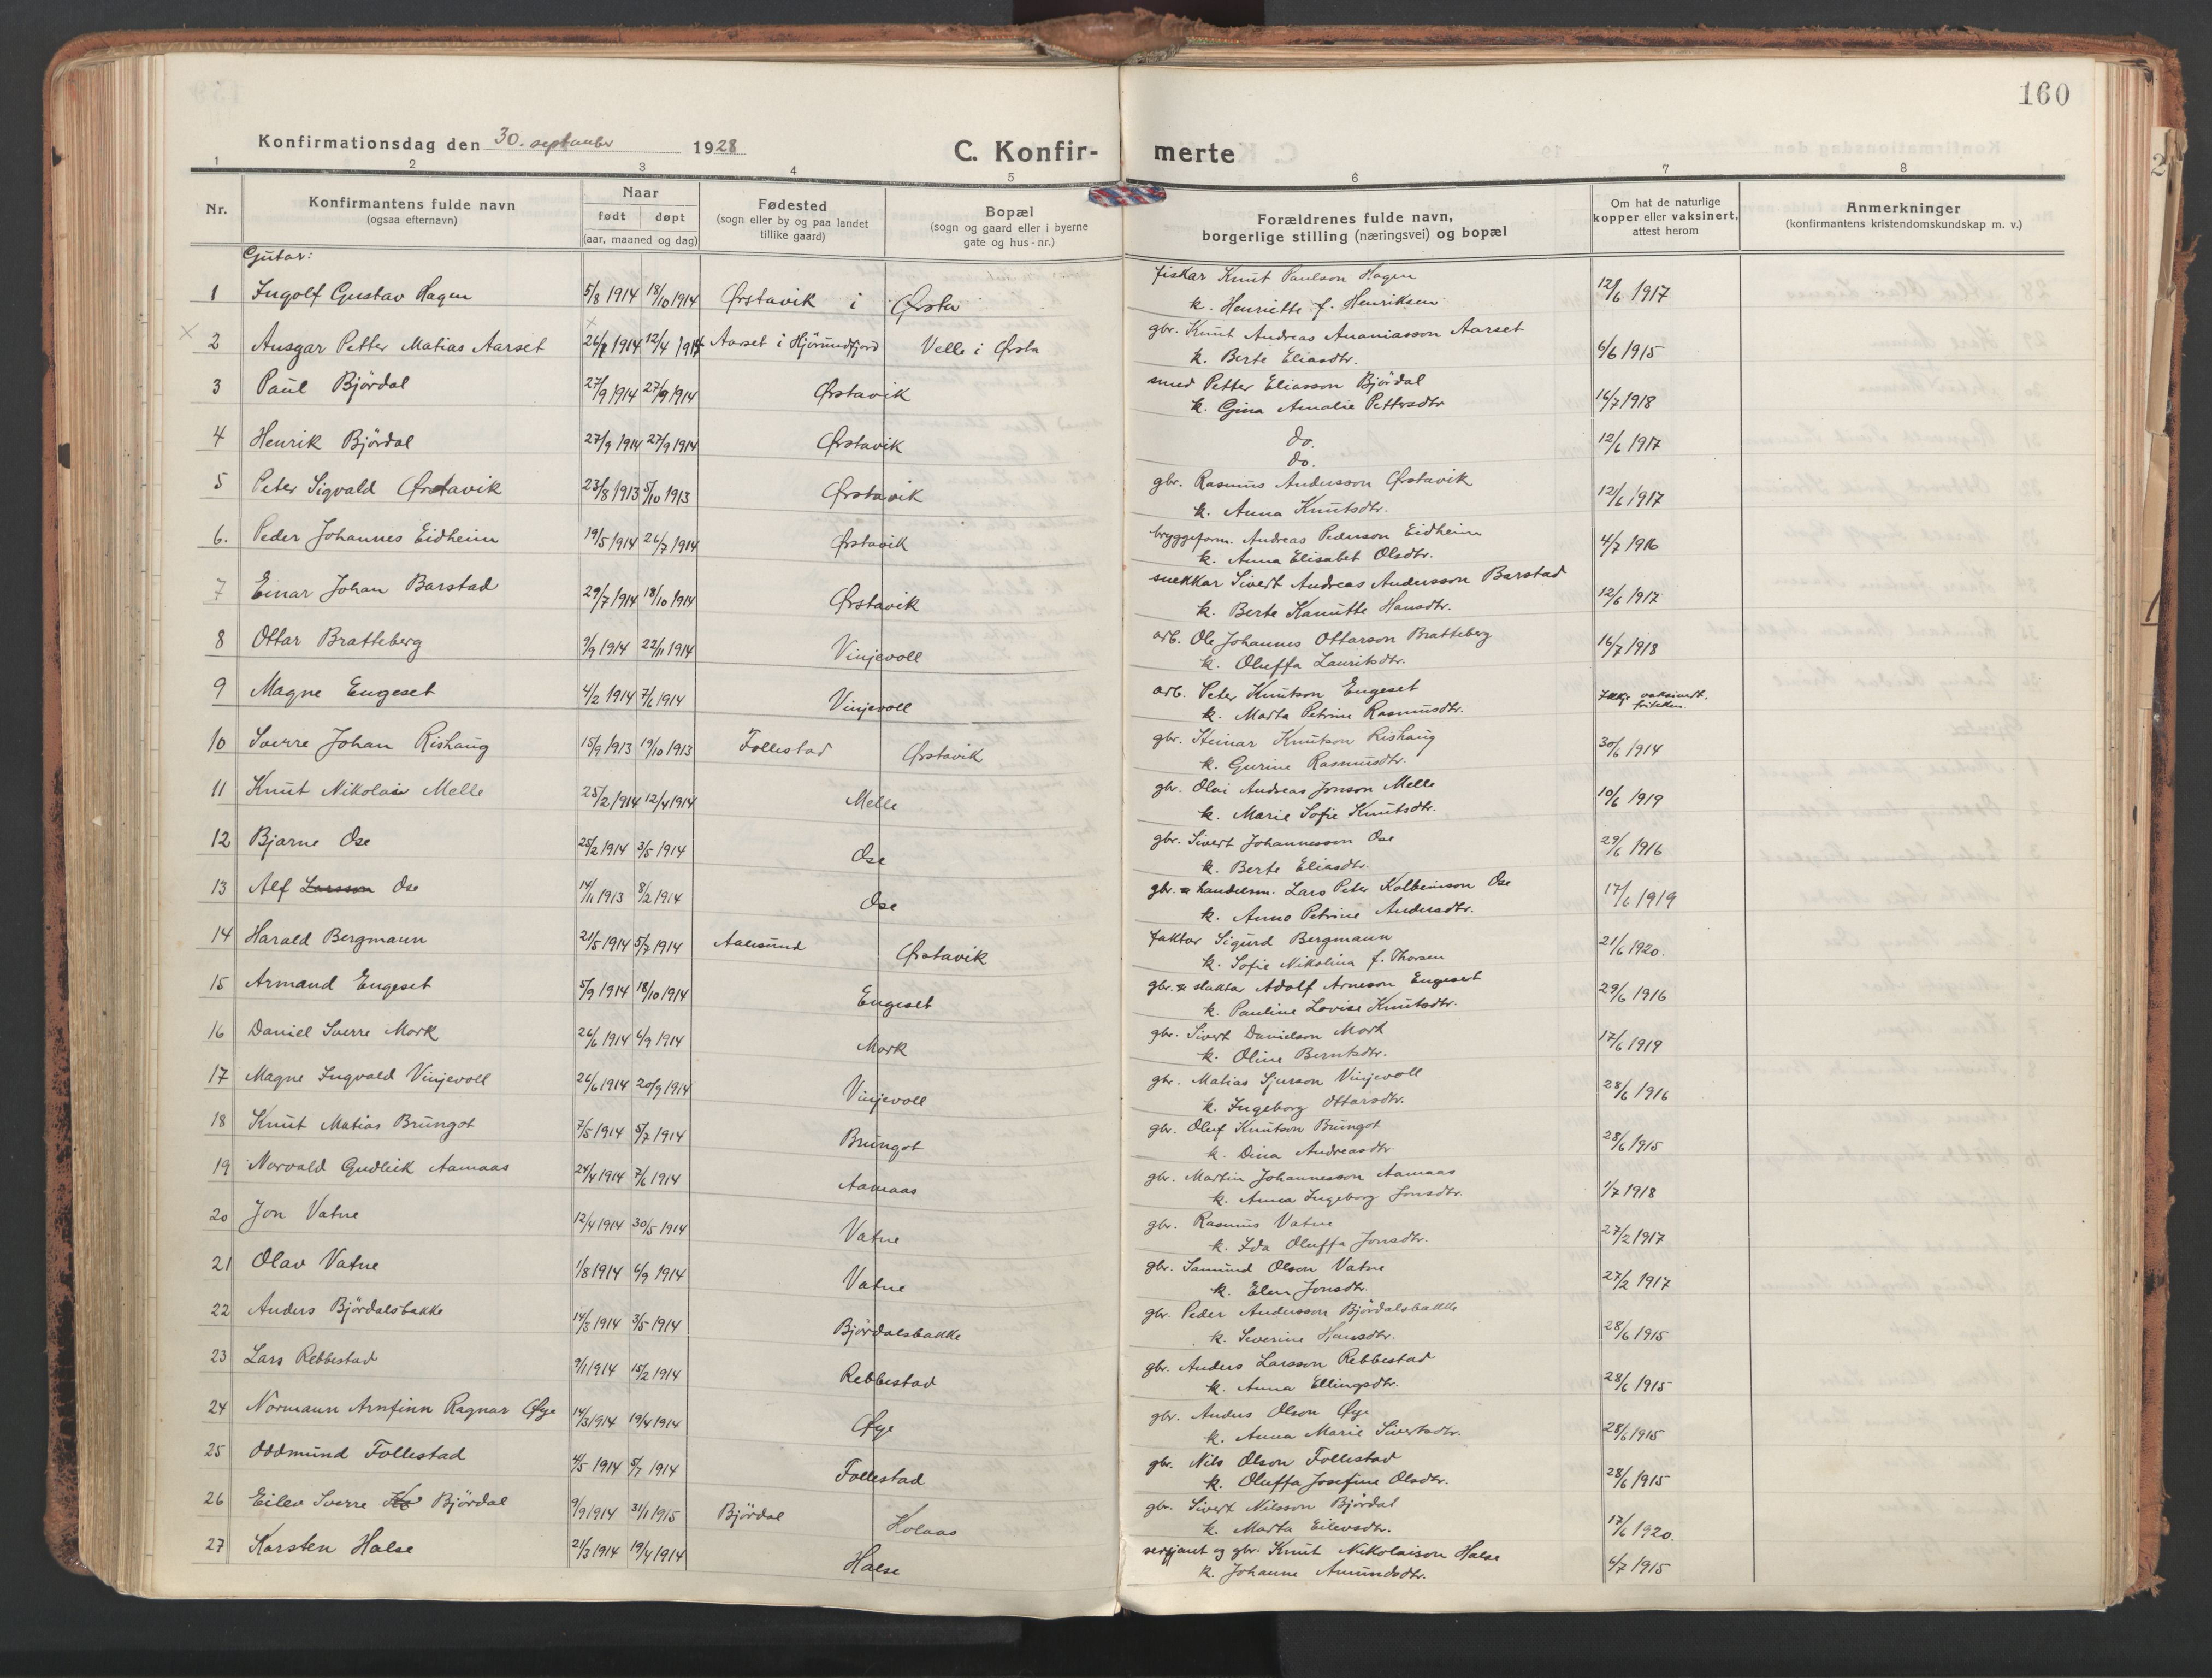 160
Konfirmationsdag den 30. september 1928
C. Konfir- merte
1 2 3 4 5 6 7 8
Nr.
Konfirmantens fulde navn
(ogsaa efternavn)
Naar
født døpt
(aar, maaned og dag)
Fødested
(sogn eller by og paa landet
tillike gaard)
Bopæl
(sogn og gaard eller i byerne
gate og hus-nr.)
Forældrenes fulde navn,
borgerlige stilling (næringsvei) og bopæl
Om hat de naturlige
kopper eller vaksinert,
attest herom
Anmerkninger
(konfirmantens kristendomskundskap m. v.)
Gutar:
1 Ingolf Gustav Hagen 5/8 1914 18/10 1914 Ørstavik i Ørsta fiskar Knut Paulson Hagen 12/6 1917
k. Henriette f. Henriksen
2 Ansgar Petter Matias Aarset 1914 12/4 1914 Aarset i Hjörundfjord Velle i Ørsta gbr. Knut Andreas Ananiasson Aarset 6/6 1915
k. Berte Eliasdtr.
3 Paul Björdal 27/9 1914 27/9 1914 Ørstavik smed Petter Eliasson Björdal 16/7 1918
k. Gina Amalie Pettersdtr
4 Henrik Björdal 27/9 1914 27/9 1914 Ørstavik do. 12/6 1917
do.
5 Peter Sigvald Ørstavik 23/8 1913 5/10 1913 Ørstavik gbr. Rasmus Andersson Ørstavik 12/6 1917
k. Anna Knutsdtr.
6. Peder Johannes Eidheim 19/5 1914 26/7 1914 Ørstavik bryggeform. Andreas Pederson Eidheim 4/7 1916
k. Anna Elisabet Olsdtr.
7 Einar Johan Barstad 29/7 1914 18/10 1914 Ørstavik snekkar Sivert Andreas Andersson Barstad 12/6 1917
k. Berte Kanutte Hansdtr.
8 Ottar Bratteberg 9/9 1914 22/11 1914 Vinjevoll arb. Ole Johannes Ottarson Bratteberg 16/7 1918
k. Oluffa Lauritsdtr.
9 Magne Engeset 4/2 1914 7/6 1914 Vinjevoll arb. Peter Knutson Engeset Ikkje vaksinert.
k. Marta Petrine Rasmusdtr. fritekken.
10 Sverre Johan Rishaug 15/9 1913 19/10 1913 Follestad Ørstavik gbr. Steinar Knutson Rishaug 30/6 1914
k. Gurine Rasmusdtr.
11 Knut Nikolai Melle 25/2 1914 12/4 1914 Melle gbr. Olai Andreas Jonson Melle 10/6 1919
k. Marie Sofie Knutsdtr.
12 Bjarne Ose 25/2 1914 3/5 1914 Ose gbr. Sivert Johannesson Ose 29/6 1916
k. Berte Eliasdtr.
13 Alf Larsson Ose 14/11 1913 8/2 1914 Ose gbr. & handelsm. Lars Peter Kolbeinson Ose 17/6 1919
k. Anne Petrine Andersdtr.
14 Harald Bergmann 21/5 1914 5/7 1914 Aalesund Ørstavik faktor Sigurd Bergmann 21/6 1920.
k. Sofie Nikolina f. Thorsen
15 Armand Engeset 5/9 1914 18/10 1914 Engeset gbr. & slaktar Adolf Arneson Engeset 29/6 1916
k. Pauline Lovise Knutsdtr.
16 Daniel Sverre Mork 26/6 1914 6/9 1914 Mork gbr. Sivert Danielson Mork 17/6 1919
k. Oline Berntsdtr.
17 Magne Ingvald Vinjevoll 26/6 1914 20/9 1914 Vinjevoll gbr. Matias Sjurson Vinjevoll 28/6 1916
k. Ingeborg Ottarsdtr.
18 Knut Matias Brungot 7/5 1914 5/7 1914 Brungot gbr. Oluf Knutson Brungot 28/6 1915
k. Dina Andreasdtr.
19 Norvald Gudleik Aamaas 24/4 1914 7/6 1914 Aamaas gbr. Martin Johannesson Aamaas 1/7 1918
k. Anna Ingeborg Jonsdtr.
20 Jon Vatne 12/4 1914 30/5 1914 Vatne gbr. Rasmus Vatne 27/2 1917
k. Ida Oluffa Jonsdtr.
21 Olav Vatne 1/8 1914 6/9 1914 Vatne gbr. Samund Olson Vatne 27/2 1917
k. Elen Jonsdtr.
22 Anders Björdalsbakke 14/3 1914 3/5 1914 Björdalsbakke gbr. Peder Andersson Björdalsbakke 28/6 1915
k. Severine Hansdtr.
23 Lars Rebbestad 9/1 1914 15/2 1914 Rebbestad gbr. Anders Larsson Rebbestad 28/6 1915
k. Anna Ellingsdtr.
24 Normann Arnfinn Ragnar Øye 14/3 1914 19/4 1914 Øye gbr. Anders Olson Øye 28/6 1915
k. Anna Marie Sivertsdtr.
25 Oddmund Follestad 4/5 1914 5/7 1914 Follestad gbr. Nils Olson Follestad 28/6 1915
k. Oluffa Josefine Olsdtr.
26 Eilev Sverre Björdal 9/9 1914 31/1 1915 Björdal Holaas gbr. Sivert Nilsson Björdal 17/6 1920.
k. Marta Eilevsdtr.
27 Karsten Halse 21/3 1914 19/4 1914 Halse serjant og gbr. Knut Nikolaison Halse 6/7 1915
k. Johanne Amundsdtr.